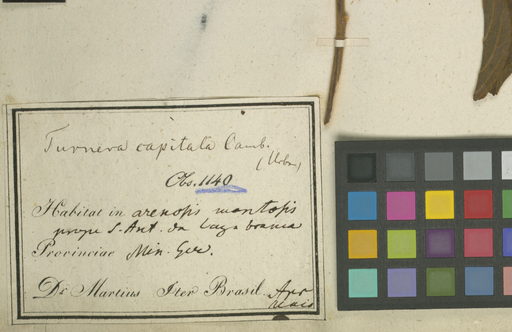 Turnera capitata Camb.
(Urban)
Obs. 1140
Habitat in arenosis montosis
prope S. Ant. da
Provinciae Min. Ger.
Dr. Martius Iter Brasil. Apr